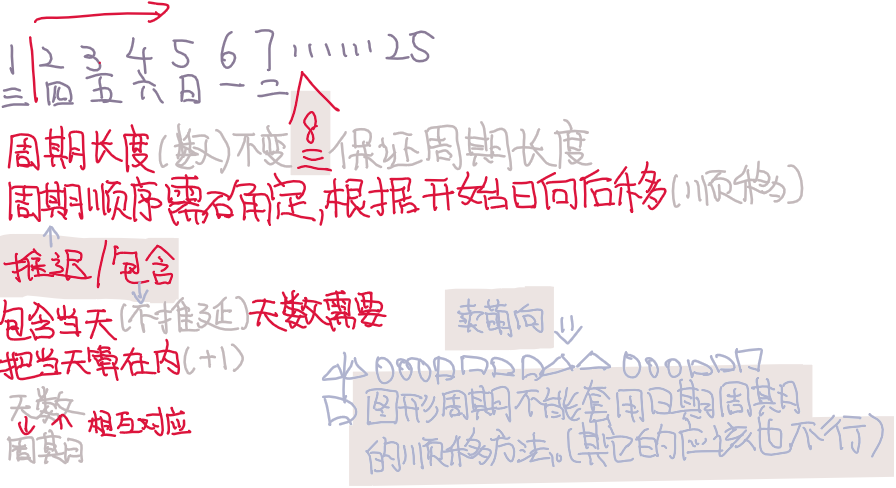 1 2 3 4 5 6 7 …… 25
三 四 五 六 日 一 二
8
三
周期长度(数)不变 保证周期长度
周期顺序需确定,根据开始日向后移(顺移)
推迟/包含
包含当天(不推延)天数需要
把当天算在内(+1)
天数
周期
相互对应
卖萌向
图形周期不能套用日期周期
的顺移方法。(其它的应该也不行)